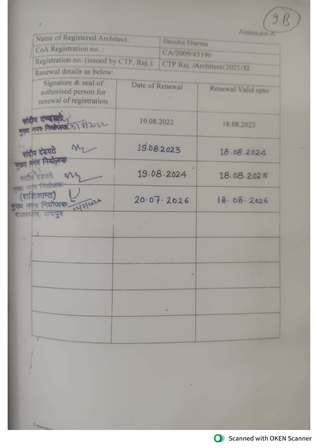 9B
Annexure-
Name of Registered Architect: Jitendra Sharma
CoA Registration no.: CA/2009/45190
Registration no. (issued by CTP, Raj.) CTP Raj./Architect/2021/32
Renewal details as below:
Signature & seal of authorised person for renewal of registration
Date of Renewal
Renewal Valid upto
मुख्य नगर नियोजक
19.08.2022
18.08.2023
संदीप दंडवते
मुख्य नगर नियोजक
19.08.2023
18.08.2024
संदीप दंडवते
मुख्य नगर नियोजक
19.08.2024
18.08.2025
मुख्य नगर नियोजक
20.07.2026
18.08.2026
Scanned with OKEN Scanner